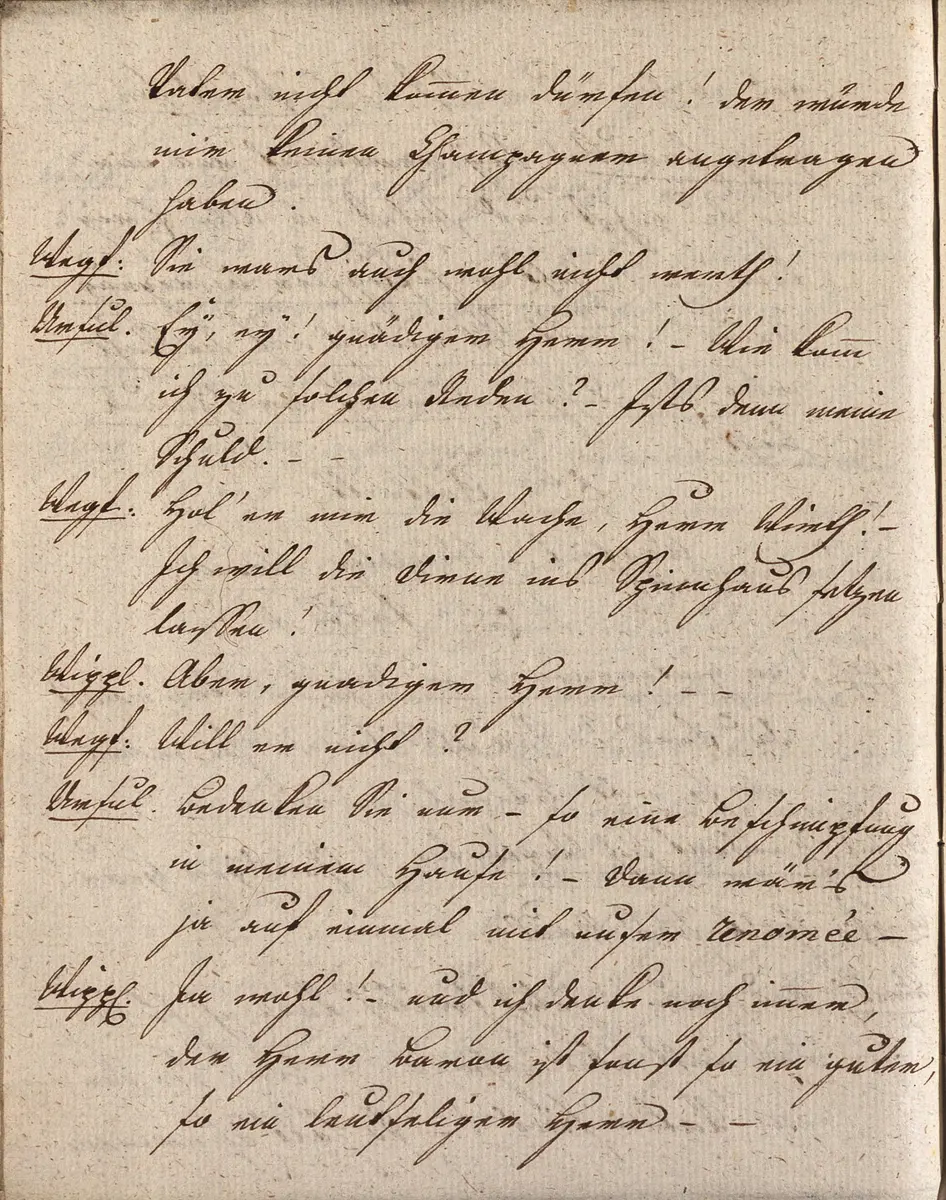 Vater nicht kom̄en dürfen! der würde
mir keinen Champagner angetragen
haben.
Wegf: Sie wars auch wohl nicht werth!
Ursul. Eÿ, eÿ! gnädiger Herr! – Wie kom̄
ich zu solchen Reden? – Ists denn meine
Schuld. – –
Wegf: Hol' er mir die Wache, Herr Wirth! –
Ich will die Dirne ins Spinnhaus setzen
lassen!
Wippl. Aber, gnädiger Herr! – –
Wegf: Will er nicht?
Ursul. Bedenken Sie nur – so eine Beschimpfung
in meinem Hause! – Dann wär's
ja auf einmal mit unser renomée –
Wippl. Ja wohl! – und ich denke noch immer,
der Herr Baron ist sonst so ein guter,
so ein leutseliger Herr – –